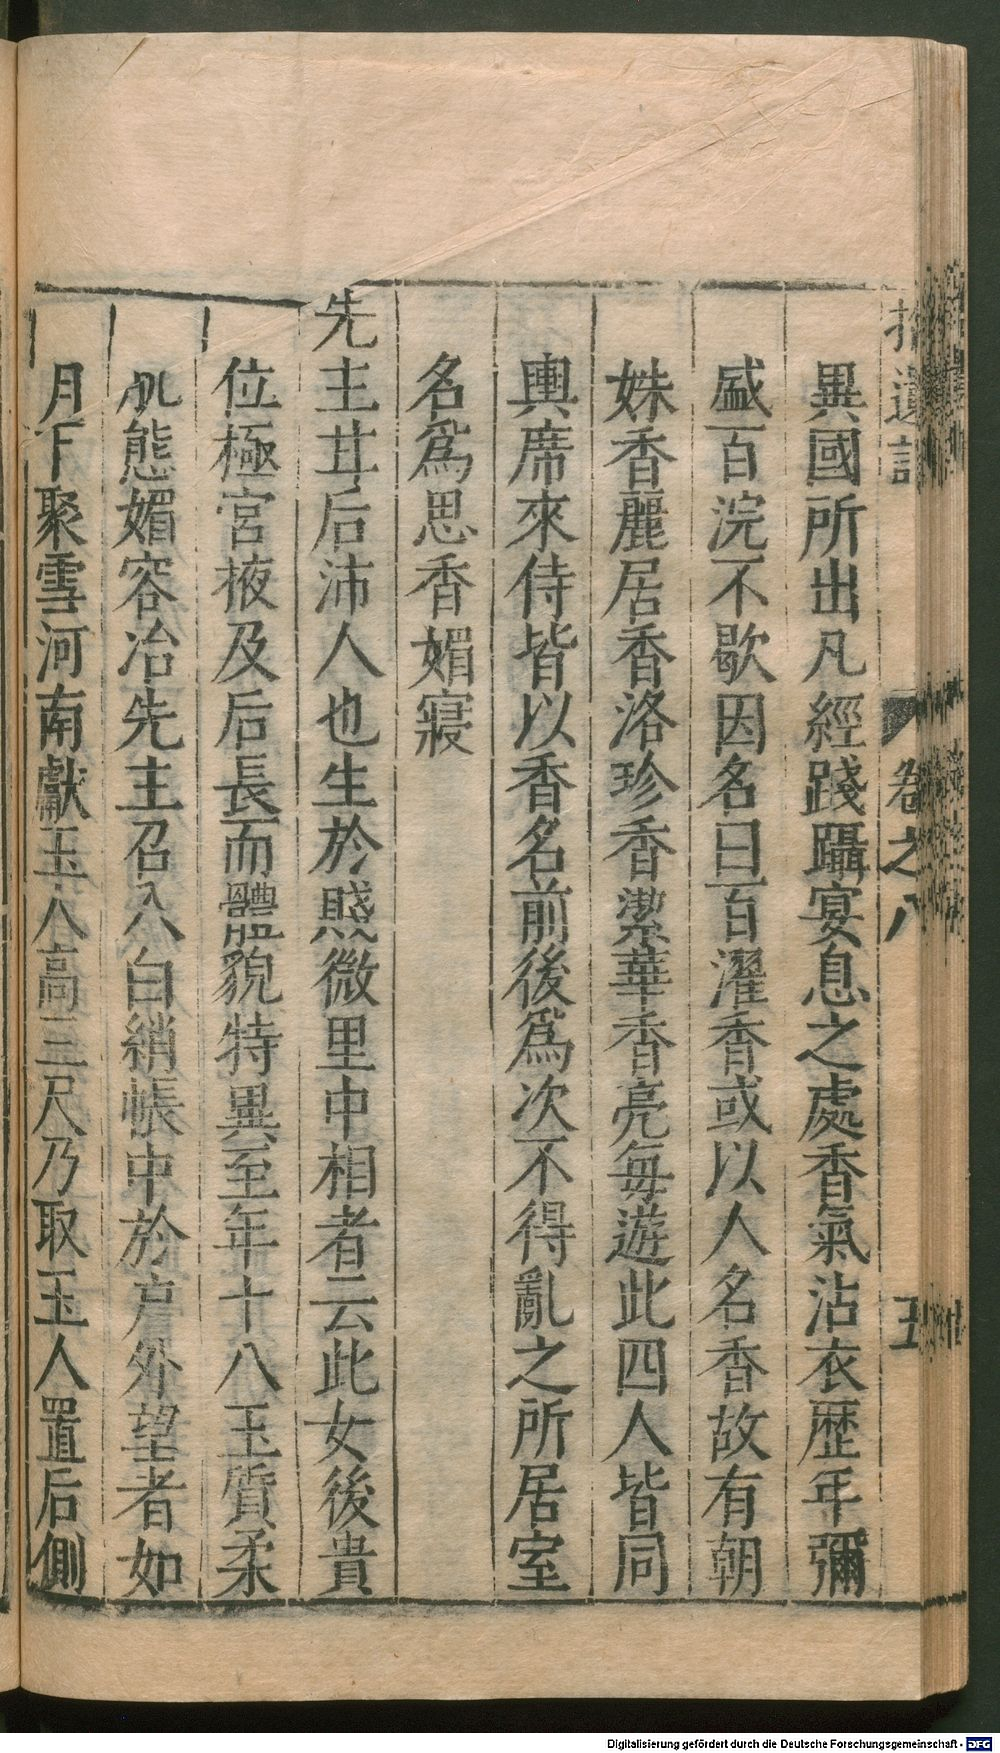 拾遺記 卷之八 五
異國所出凡經踐躡宴息之處香氣沾衣歷年彌
盛百浣不歇因名曰百濯香或以人名香故有朝
姝香麗居香洛珍香潔華香亮每遊此四人皆同
輿席來侍皆以香名前後爲次不得亂之所居室
名爲思香媚寢
先主甘后沛人也生於賤微里中相者云此女後貴
位極宮掖及后長而體貌特異至年十八玉質柔
肌態媚容冶先主召入白綃帳中於戸外望者如
月下聚雪河南獻玉人高三尺乃取玉人置后側
Digitalisierung gefördert durch die Deutsche Forschungsgemeinschaft - DFG